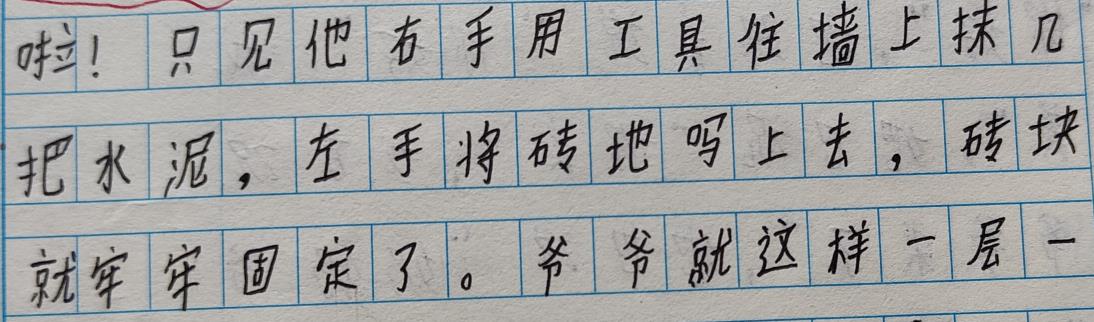 啦！只见他右手用工具往墙上抹几
把水泥，左手将砖地吗上去，砖块
就牢牢固定了。爷爷就这样一层一